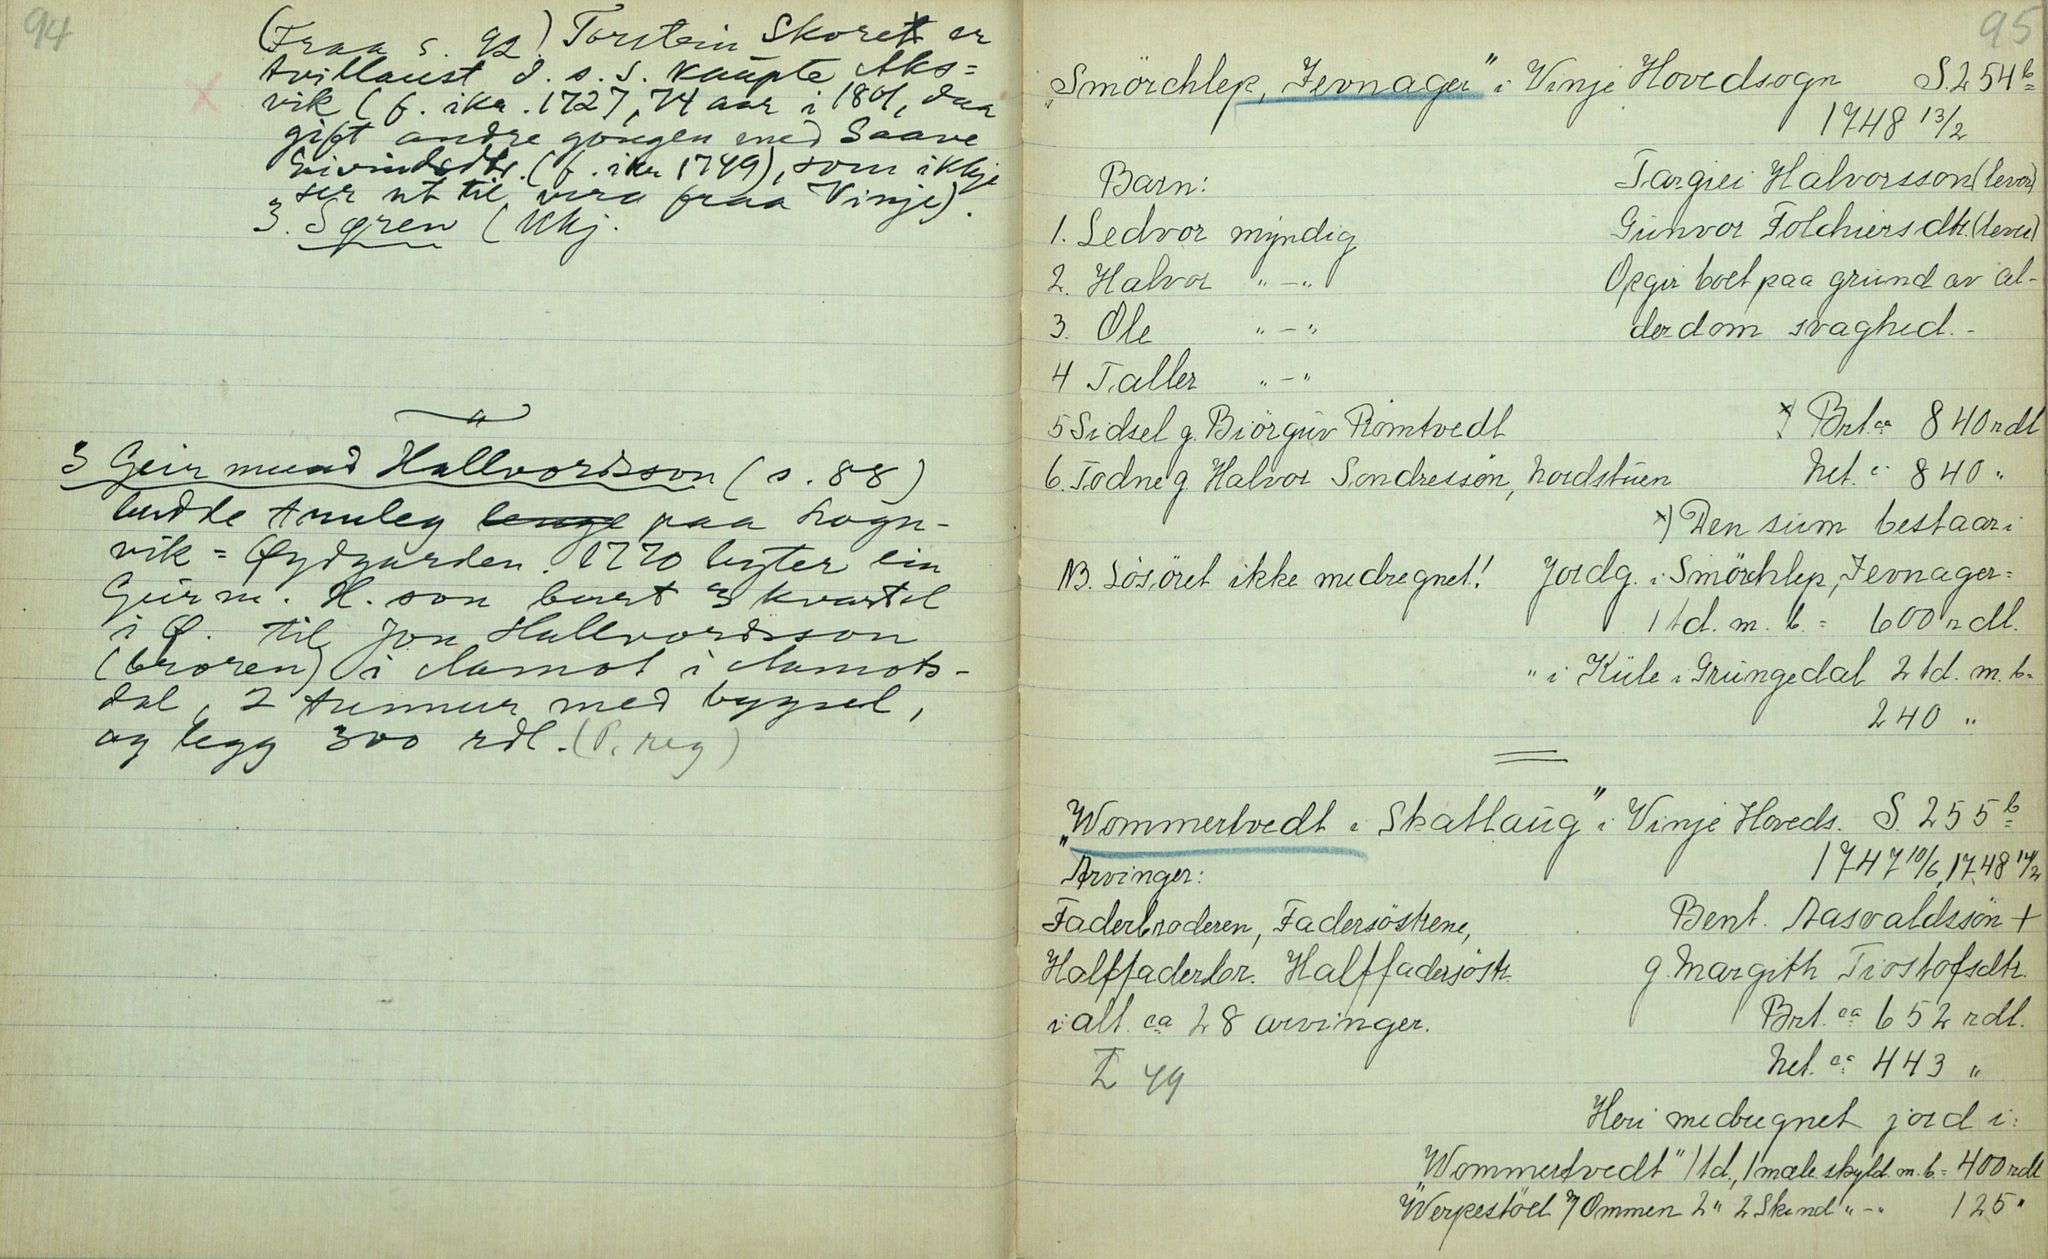 94
(Fraa s. 92) Torstein Skoret er
tvillaust d. s. s. kaupte Aks=
vik (f. ikr. 1727, 74 aar i 1801, daa
gift andre gongen med Saave
Eivindsdtr. (f. ikr 1749), som ikkje
ser ut til vera fraa Vinje).
3. Søren (Ukj.
3 Geirmund Hallvordsson (s. 88)
budde truleg lenge paa Logn-
vik = Øydgarden. 1770 byter ein
Geirm. H. son burt 3 kvartel
i Ø. til Jon Hallvordsson
(broren) i Aamot i Aamots-
dal, 2 tunnur med bygsel,
og legg 300 rdl. (P. reg)
95
"Smörchlep, Jevnager" i Vinje Hovedsogn S. 254 b
1748 13/2
Barn: Targiei Halvorsson (lever)
1. Ledvor myndig Gunvor Folchiersdtr. (lever)
2. Halvor " - " Opgir boet paa grund av al-
3. Ole " - " derdom svaghed. -
4 Taller " - "
5 Sidsel g. Biörguv Romtvedt x) Brt. ca 840 rdl
6. Todne g Halvor Sondressøn, Nordstuen Net. " 840 "
x) Den sum bestaar i
NB. Lösöret ikke medregnet! Jordg. i Smörchlep, Jevnager =
1 td. m. b. = 600 rdl.
" i Kule i Grungedal 2 td. m. b =
240 "
"Wommertvedt i Skatlaug" i Vinje Hoveds. S. 255 b
1747 10/6, 1748 14/2
Arvinger:
Faderbroderen, Fadersöstrene, Bent. Aasvaldssön +
Halffaderbr. Halffadersöstr. g. Margith Tiostofsdtr.
i alt. ca 28 arvinger. Brt. ca 652 rdl.
49 Net. ca 443 "
Heri medregnet jord i:
"Wommertvedt" 1 td., 1 mæle. skyld. m. b. = 400 rdl
"Werpestöel" Ommen 2 " 2 Skind " - " 125 "